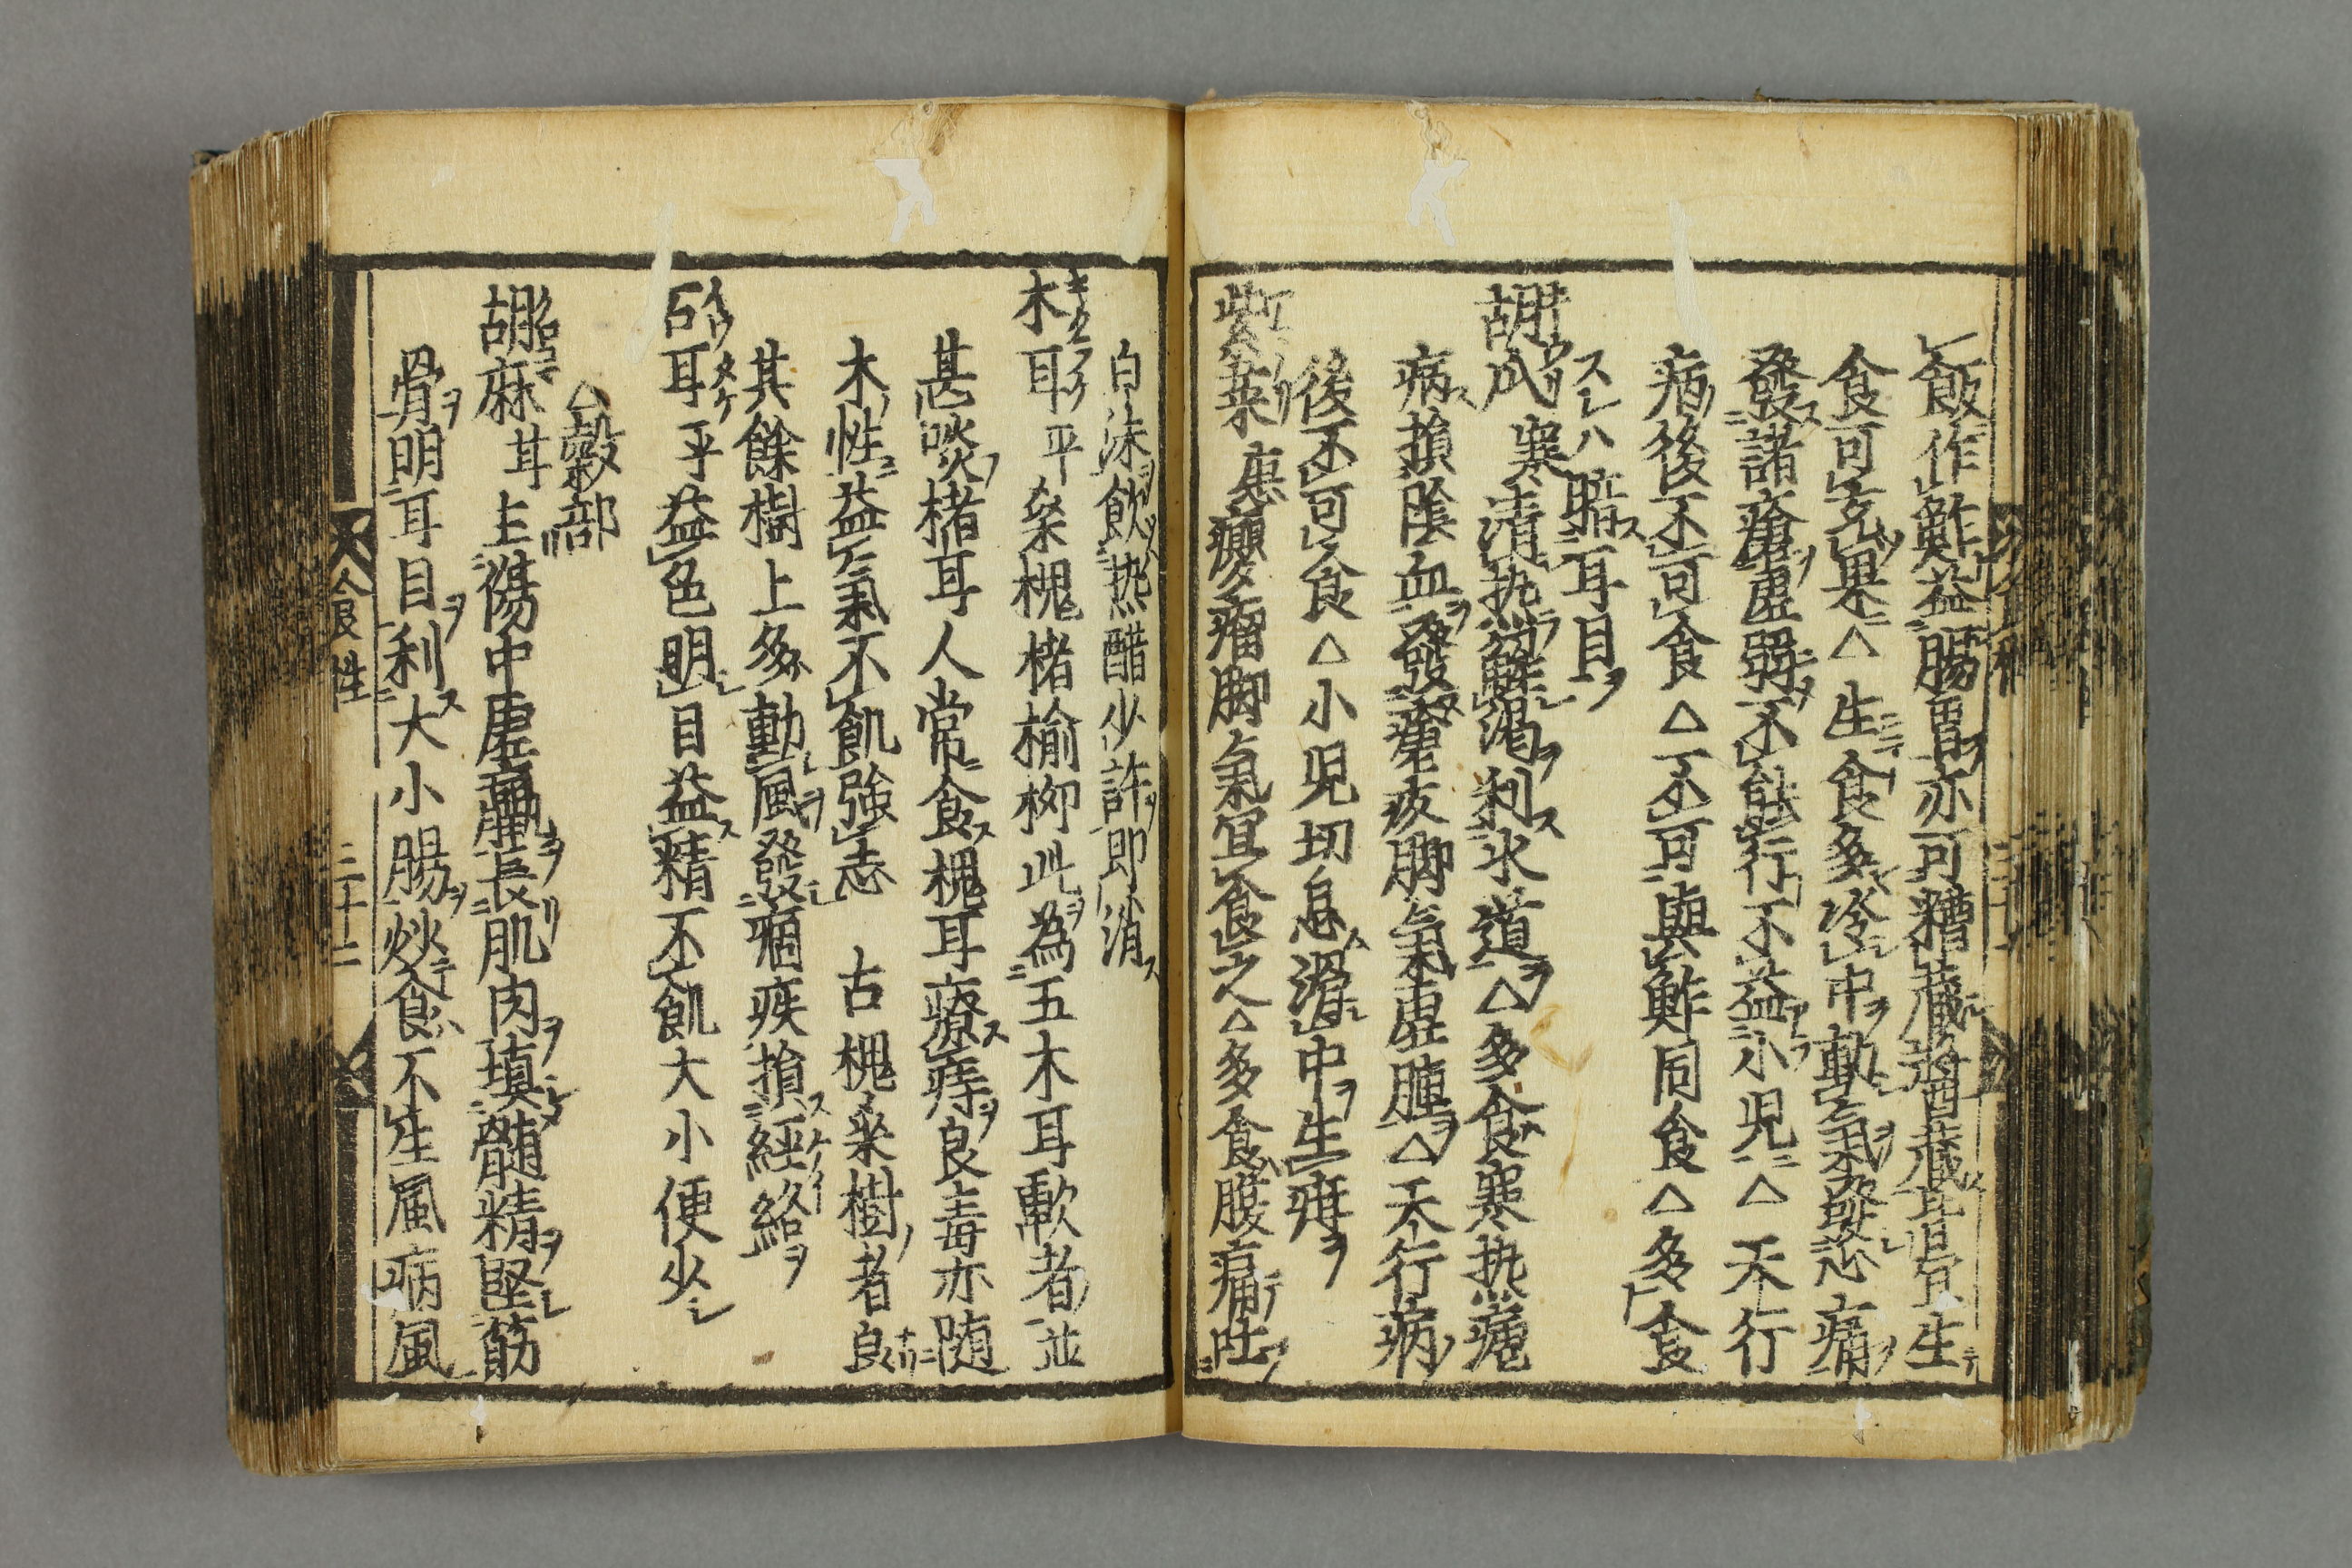 飯作鮓益腸胃亦可糟藏醬藏皆宜生
食可充果△生食多冷中動氣發心痛
發諸瘡虛弱不能行不益小児△天行
病後不可食△不可與鮓同食△多食
スレハ暗耳目ヲ
胡瓜 寒清热觧渇利水道△多食寒热瘧
病損陰血發瘡疥脚氣虛腫△天行病
後不可食△小児切忌滑中生疳
紫菜 患癭瘤脚氣冝食之△多食腹痛吐
白沫飲热醋少許即消
木耳 平桒槐楮榆柳此為五木耳軟者並
甚啖楮耳人常食槐耳療痔良毒亦随
木性益氣不飢強志 古槐桒樹者良
其餘樹上多動風發痼疾損經絡
石耳平益色明目益精不飢大小便少
△穀部
胡麻 甘主傷中虛羸長肌肉填髓精堅筋
骨明耳目利大小腸炒食不生風病風
食性 三十二